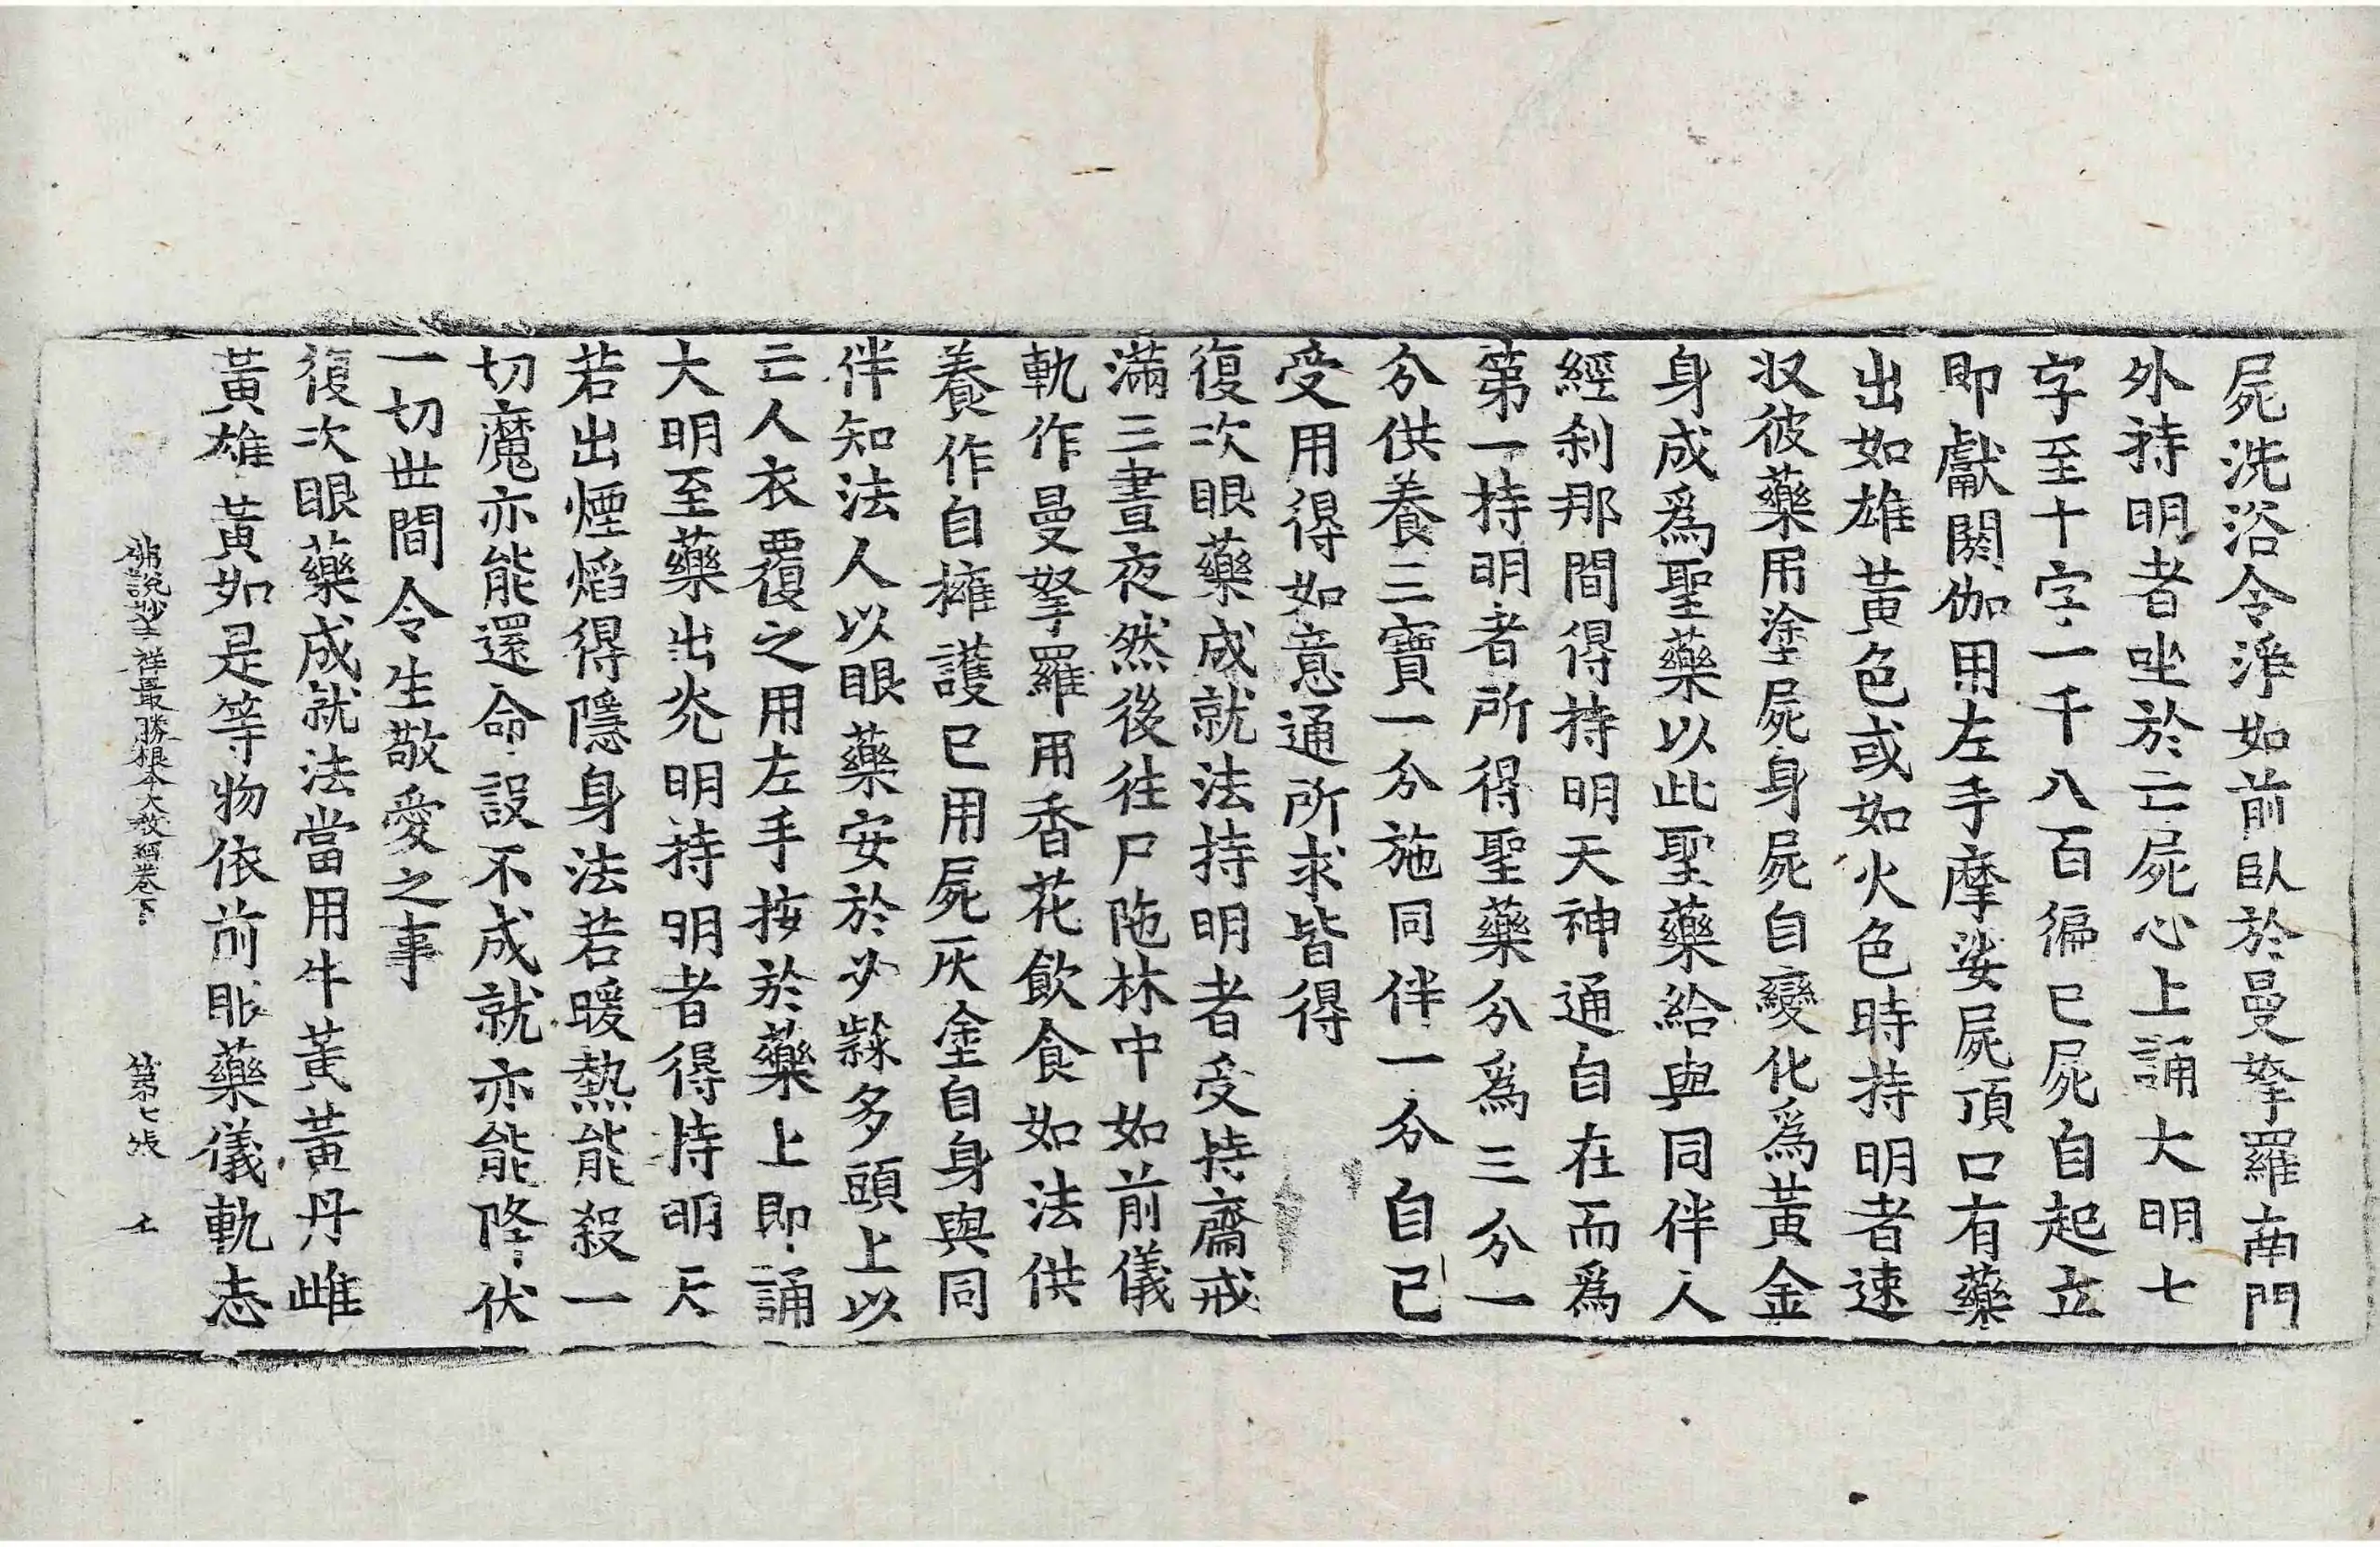 屍洗浴令淨如前臥於曼拏羅南門
外持明者坐於亡屍心上誦大明七
字至十字一千八百徧已屍自起立
即獻閼伽用左手摩娑屍頂口有藥
出如雄黃色或如火色時持明者速
収彼藥用塗屍身屍自變化爲黃金
身成爲聖藥以此聖藥給與同伴人
經刹那間得持明天神通自在而爲
第一持明者所得聖藥分爲三分一
分供養三寶一分施同伴一分自己
受用得如意通所求皆得
復次眼藥成就法持明者受持齋戒
滿三晝夜然後往尸陁林中如前儀
軌作曼拏羅用香花飲食如法供
養作自擁護已用屍灰塗自身與同
伴知法人以眼藥安於必隸多頭上以
亡人衣覆之用左手按於藥上即誦
大明至藥出光明持明者得持明天
若出煙焰得隱身法若暖熱能殺一
切魔亦能還命設不成就亦能降伏
一切世間令生敬愛之事
復次眼藥成就法當用牛黃黃丹雌
黃雄黃如是等物依前眼藥儀軌志
佛說妙吉祥最勝根本大教經卷下 第七張